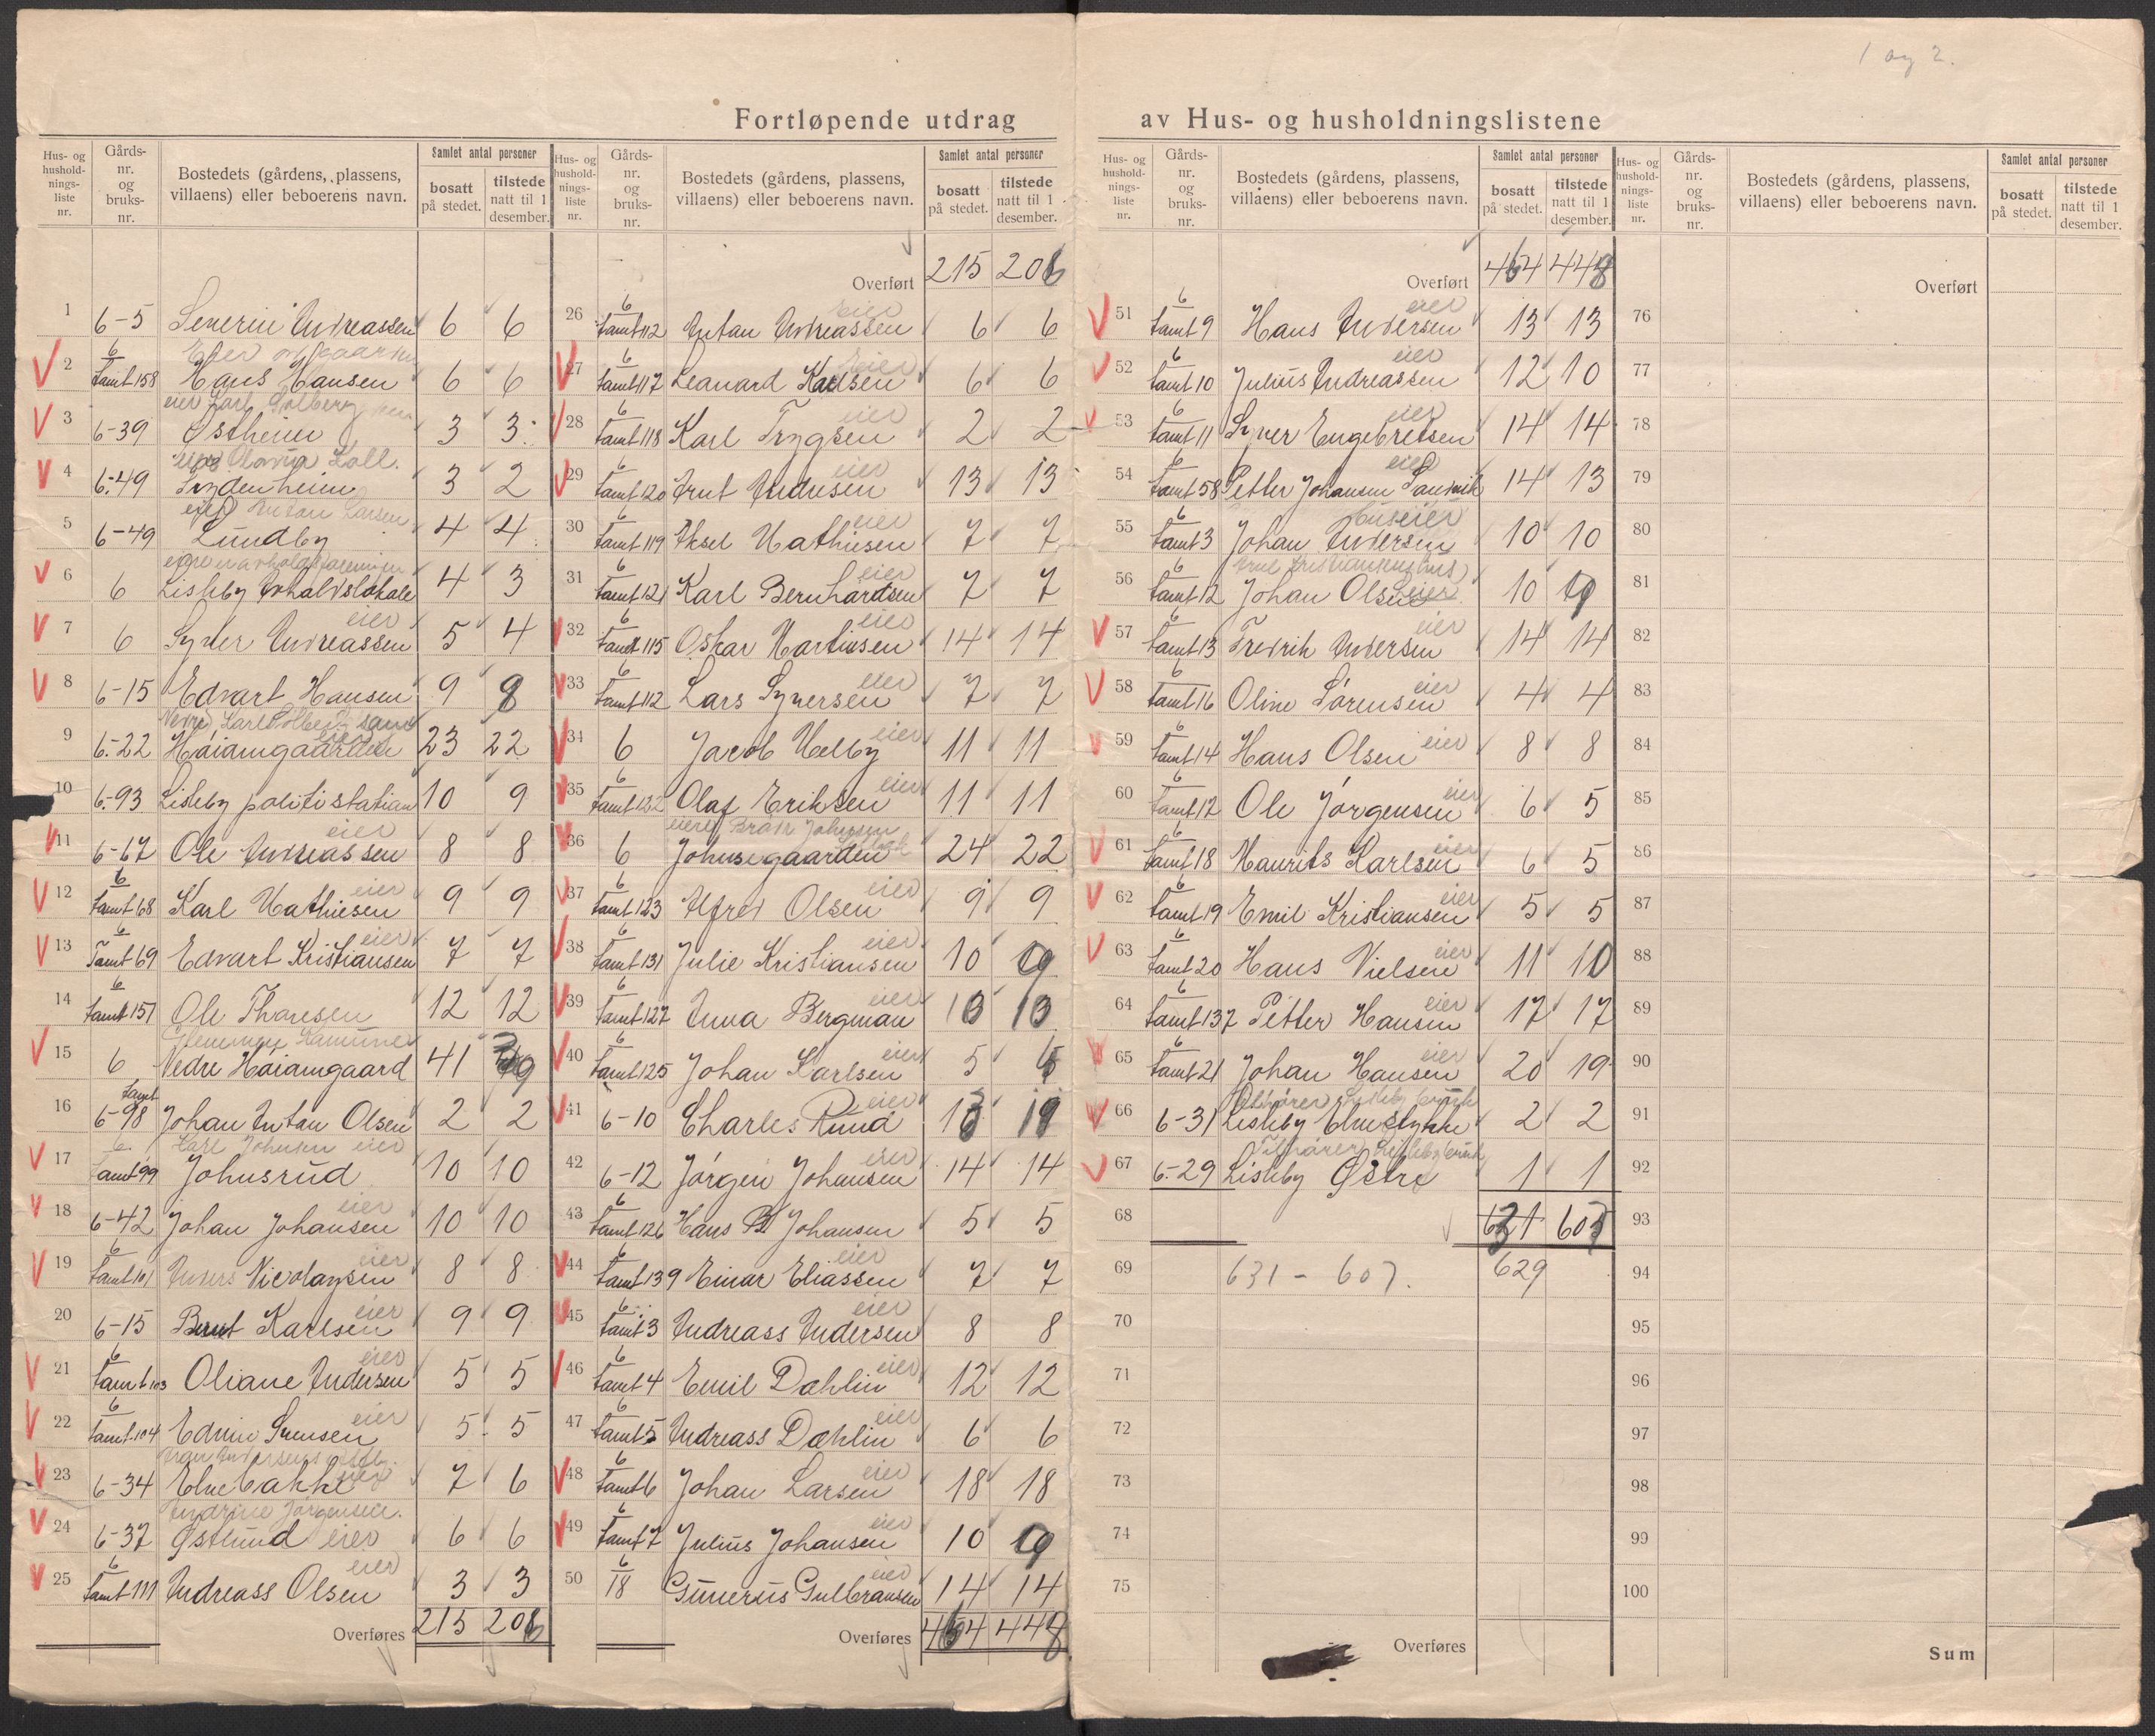 1 og 2.
Fortløpende utdrag av Hus- og husholdningslistene
Hus- og husholdningsliste nr.
Gårds-nr. og bruks-nr.
Bostedets (gårdens, plassens, villaens) eller beboerens navn.
Samlet antal personer
bosatt på stedet.
tilstede natt til 1 desember.
1 6-5 Severin Andreassen 6 6
2 6 Tamt 158 Hans Hansen 6 6
3 6-39 Østheim 3 3
4 6-49 Lindenheim 3 2
5 6-49 Lundby 4 4
6 6 Lisleby Avholdslokale 4 3
7 6 Syver Andreassen eier 5 4
8 6-15 Edvart Hansen 9 8
9 6-22 Høiamgaarden 23 22
10 6-93 Lisleby politistation 10 9
11 6-67 Ole Andreassen eier 8 8
12 6 Tamt 68 Karl Mathiesen eier 9 9
13 6 Tamt 69 Edvart Kristiansen eier 7 7
14 6 Tamt 151 Ole Thoresen 12 12
15 6 Nedre Høiamgaard 41 39
16 Tamt 6-98 Johan Anton Olsen 2 2
17 6 Tamt 99 Karl Johnsen eier Johnsrud 10 10
18 6-42 Johan Johansen eier 10 10
19 6 Tamt 101 Anders Nicolaysen eier 8 8
20 6-15 Bernt Karlsen eier 9 9
21 6 Tamt 103 Oliane Andersen eier 5 5
22 6 Tamt 104 Edvin Svensen eier 5 5
23 6-34 Elvebakke 7 6
24 6-37 Andrine Jørgensen Østlund eier 6 6
25 6 Tamt 111 Andreass Olsen eier 3 3
Overføres 215 208
Hus- og husholdningsliste nr.
Gårds-nr. og bruks-nr.
Bostedets (gårdens, plassens, villaens) eller beboerens navn.
Samlet antal personer
bosatt på stedet.
tilstede natt til 1 desember.
Overført 215 208
26 6 Tamt 112 Anton Andreassen eier 6 6
27 6 Tamt 117 Leonard Karlsen eier 6 6
28 6 Tamt 118 Karl Trygsen eier 2 2
29 6 Tamt 120 Arnt Andresen eier 13 13
30 6 Tamt 119 Aksel Mathiesen eier 7 7
31 6 Tamt 121 Karl Bernhardsen eier 7 7
32 6 Tamt 115 Oskar Martinsen eier 14 14
33 6 Tamt 112 Lars Syversen eier 7 7
34 6 Jacob Melby eier 11 11
35 6 Tamt 122 Olaf Eriksen eier 11 11
36 6 Johnsegaarden 24 22
37 6 Tamt 123 Alfred Olsen eier 9 9
38 6 Tamt 131 Julie Kristiansen eier 10 9
39 6 Tamt 127 Anna Bergman eier 13 13
40 6 Tamt 125 Johan Karlsen eier 5
41 6-10 Charles Rund eier
42 6-12 Jørgen Johansen eier 14 14
43 6 Tamt 126 Hans B Johansen 5 5
44 6 Tamt 139 Einar Eliassen eier 7 7
45 6 Tamt 3 Andreass Andersen eier 8 8
46 6 Tamt 4 Emil Dahlin eier 12 12
47 6 Tamt 5 Andreass Dahlin eier 6 6
48 6 Tamt 6 Johan Larsen eier 18 18
49 6 Tamt 7 Julius Johansen eier 10 9
50 6 18 Gunerius Gulbransen eier 14 14
Overføres 464 448
Hus- og husholdningsliste nr.
Gårds-nr. og bruks-nr.
Bostedets (gårdens, plassens, villaens) eller beboerens navn.
Samlet antal personer
bosatt på stedet.
tilstede natt til 1 desember.
Overført 464 448
51 6 Tamt 9 Hans Andersen eier 13 13
52 6 Tamt 10 Julius Andreassen eier 12 10
53 6 Tamt 11 Syver Engebretsen eier 14 14
54 6 Tamt 58 Petter Johansen Sandvik eier 14 13
55 6 Tamt 3 Johan Andersen huseier 10 10
56 6 Tamt 12 Johan Olsen 10 9
57 6 Tamt 13 Fredrik Andersen eier 14 14
58 6 Tamt 16 Oline Sørensen eier 4 4
59 6 Tamt 14 Hans Olsen eier 8 8
60 6 Tamt 12 Ole Jørgensen eier 6 5
61 6 Tamt 18 Maurits Karlsen eier 6 5
62 6 Tamt 19 Emil Kristiansen eier 5 5
63 6 Tamt 20 Hans Nielsen eier 11 10
64 6 Tamt 137 Petter Hansen eier 17 17
65 6 Tamt 21 Johan Hansen eier 20 19
66 6-31 Tilhører Lisleby bruk Lisleby Elvestykke 2 2
67 6-29 Tilhører Lisleby bruk Lisleby Østre 1 1
68 631 607
69 631 - 607. 629
70
71
72
73
74
75
Overføres
Hus- og husholdningsliste nr.
Gårds-nr. og bruks-nr.
Bostedets (gårdens, plassens, villaens) eller beboerens navn.
Samlet antal personer
bosatt på stedet.
tilstede natt til 1 desember.
Overført
76
77
78
79
80
81
82
83
84
85
86
87
88
89
90
91
92
93
94
95
96
97
98
99
100
Sum